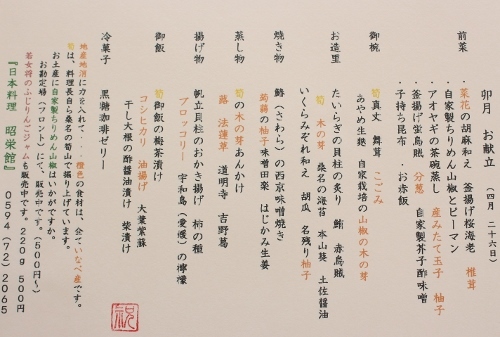 卯月 お献立 (四月 二十六日)
前菜
・菜花の胡麻和え 釜揚げ桜海老 椎茸
・自家製ちりめん山椒とピーマン
・アオヤギの茶碗蒸し 産みたて玉子 柚子
・釜揚げ蛍烏賊 分葱 自家製芥子酢味噌
・子持ち昆布 お赤飯
御椀
筍真丈 舞茸 こごみ
あやめ生麩 自家栽培の山椒の木の芽
お造里
たいらぎの貝柱の炙り 鮪 赤烏賊
筍 木の芽 桑名の海苔 本山葵 土佐醤油
いくらみぞれ和え 胡瓜 名残り柚子
焼き物
鰆(さわら)の西京味噌焼き
蒟蒻の柚子味噌田楽 はじかみ生姜
蒸し物
筍の木の芽あんかけ
蕗 法蓮草 道明寺 吉野葛
揚げ物
帆立貝柱のおかき揚げ 柿の種
ブロッコリー 宇和島(愛媛)の檸檬
御飯
筍御飯の梅茶漬け
コシヒカリ 油揚げ 大葉紫蘇
干し大根の酢醤油漬け 柴漬け
冷菓子
黒糖珈琲ゼリー
地産地消に力を入れて・・・橙色の食材は、全ていなべ産です。
筍は、料理長自ら桑名の筍山で掘り上げています。
お土産に自家製ちりめん山椒はいかがですか。
お勘定場(フロント)にて、販売中です。(500円〜)
若女将のふじりんごジャムも販売中です。220g 500円
『日本料理 昭栄館』 0594(72)2065